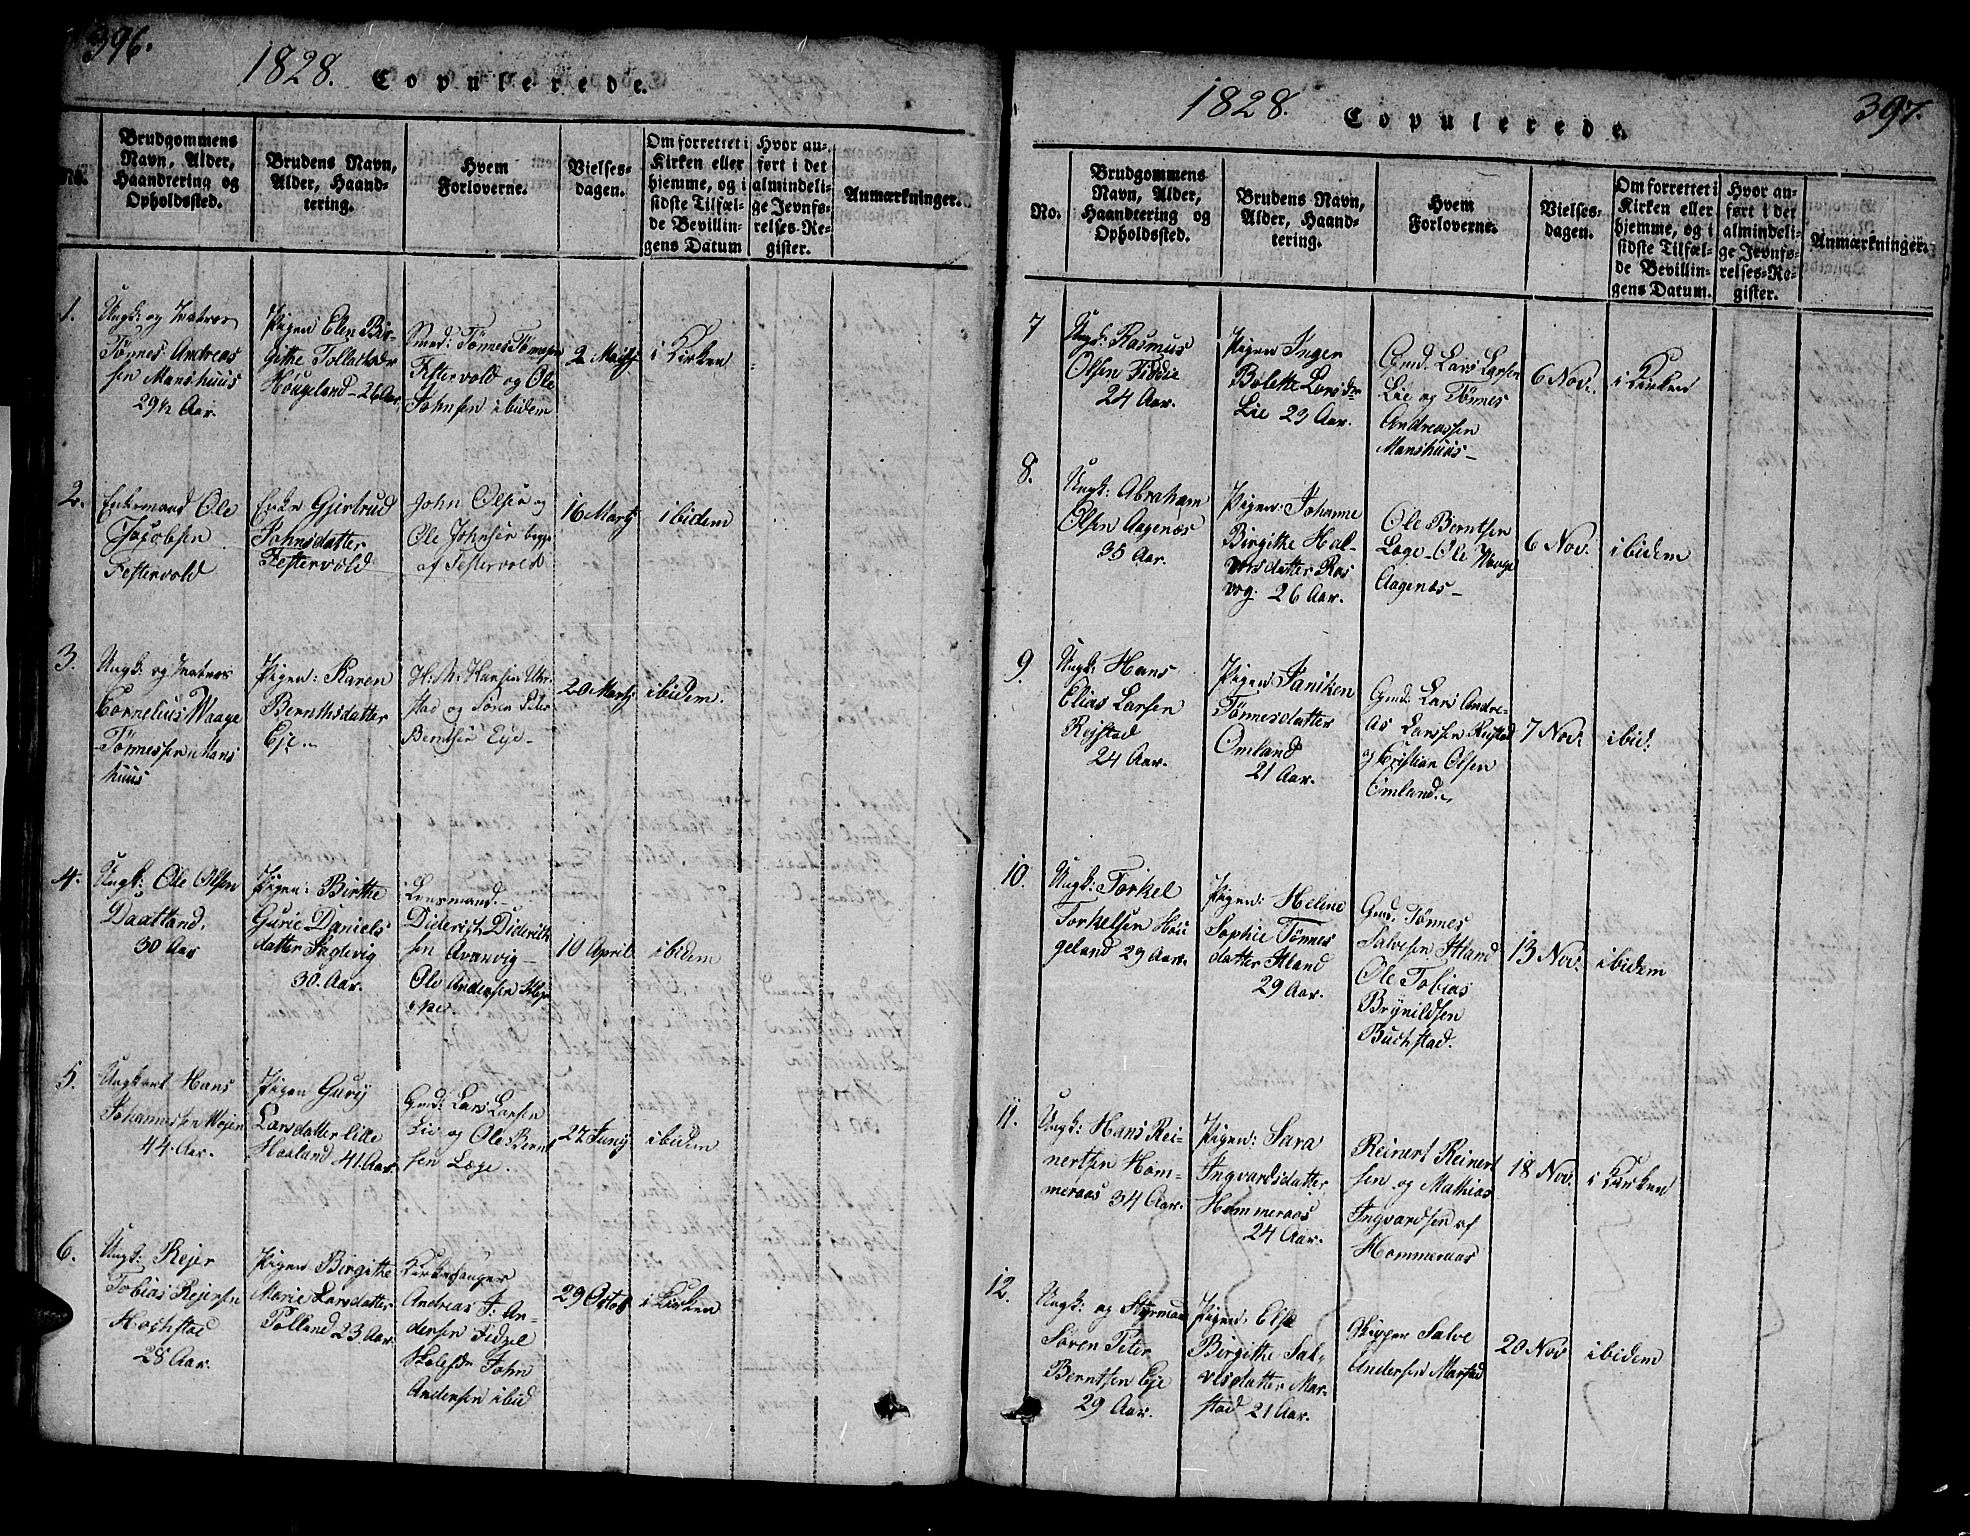 396.
1828. Copulerede.
No.
Brudgommens
Navn, Alder,
Haandtering og
Opholdssted.
Brudens Navn,
Alder, Haand-
tering.
Hvem
Forloverne.
Vielses-
dagen.
Om forrettet i
Kirken eller
hjemme, og i
sidste Tilfæl-
de Bevillin-
gens Datum
Hvor an-
ført i det
almindeli-
ge Jevnfø-
relses-Re-
gister.
Anmærkninger.
1.
Ungk: og Matros
Tønnes Andreas
sen Manshuus
29½ Aar.
Pigen Elen Bir-
githe Tollaksdr
Hougeland - 26 Aar
Gmd: Tønnes Tønnesen
Festervold og Ole
Johnsen ibidem
2 Martj
i Kirken
2.
Enkemand Ole
Jacobsen
Festervold
Enke Gjertrud
Johnsdatter
Festervold
John Olsen og
Ole Johnsen begge
af Festervold
16 Martj
ibidem
3.
Ungk: og Matros
Cornelius Waage
Tønnessen Mans
huus
Pigen: Karen
Bernthsdatter
Eje.
H: M: Hansen
stad og Søren Peter
Berntsen Eje-
20 Martj
ibidem.
4.
Ungk: Ole Olsen
Daatland.
30 Aar
Pigen: Birthe
Gurie Daniels
datter Sagevig
30. Aar.
Lensmand
Diderich Diderich
sen Avarvig -
Ole Andersen
10 April
ibidem
5.
Ungkarl Hans
Johannessen Mojen
44. Aar.
Pigen Gury
Larsdatter lille
Haaland 41 Aar
Gmd: Lars Larsen
Lie og Ole Bernt
sen Læge.
27 Junj
ibidem
6.
Ungk: Rejer
Tobias Rejersen
Hochstad
28 Aar.
Pigen Birgithe
Marie Larsdatter
Tolland 23 Aar
Kirkesanger
Andreas J: An-
dersen Fidzel
Skoleh: John
Andersen ibid
29 Octob
i Kirken
1828. Copulerede.
397.
No.
Brudgommens
Navn, Alder,
Haandtering og
Opholdssted.
Brudens Navn,
Alder, Haand-
tering.
Hvem
Forloverne.
Vielses-
dagen.
Om forrettet i
Kirken eller
hjemme, og i
sidste Tilfæl-
de Bevillin-
gens Datum.
Hvor an-
ført i det
almindeli-
ge Jevnfø-
relses-Re-
gister.
Anmærkninger.
7
Ungk: Rasmus
Olsen Fiddie
24 Aar.
Pigen Inger
Bolette Larsdr
Lie 23 Aar.
Gmd. Lars Larsen
Lie og Tønnes
Andreassen
Manshuus-
6 Nov:
i Kirken
8.
Ungk: Abraham
Olsen Aagenæs
35 Aar.
Pigen: Johanne
Birgithe Hal-
vorsdatter Ros
vog. 26 Aar.
Ole Berntsen
Læge - Ole Waage
Aagenæs-
6 Nov.
ibidem
9.
Ungk: Hans
Elias Larsen
Rejstad
24 Aar.
Pigen Janiken
Tønnesdatter
Omland
21 Aar.
Gmd: Lars Andre-
as Larsen Rejstad
og Christian Olsen
Omland.
7 Nov:
ibid:
10.
Ungk: Torkel
Torkelsen Hou
geland 29 Aar.
Pigen: Helene
Sophie Tønnes
datter Atland
29 Aar.
Gmd. Tønnes
Salvesen Atland
Ole Tobias
Brynildsen
Buchstad.
13 Nov:
ibidem
11.
Ungk: Hans Rei-
nertsen Hom-
meraas 34 Aar.
Pigen: Sara
Ingvardsdatter
Hommeraas
24 Aar.
Reinert Reinert
sen og Mathias
Ingvardsen af
Hommeraas
18 Nov.
i Kirken
12.
Ungk: og Styrman
Søren Peter
Berntsen Eje
29 Aar.
Pigen: Else
Birgithe Sal-
vesdatter Mar-
stad 21 Aar.
Skipper Salve
Andersen Marstad
20 Nov
ibidem